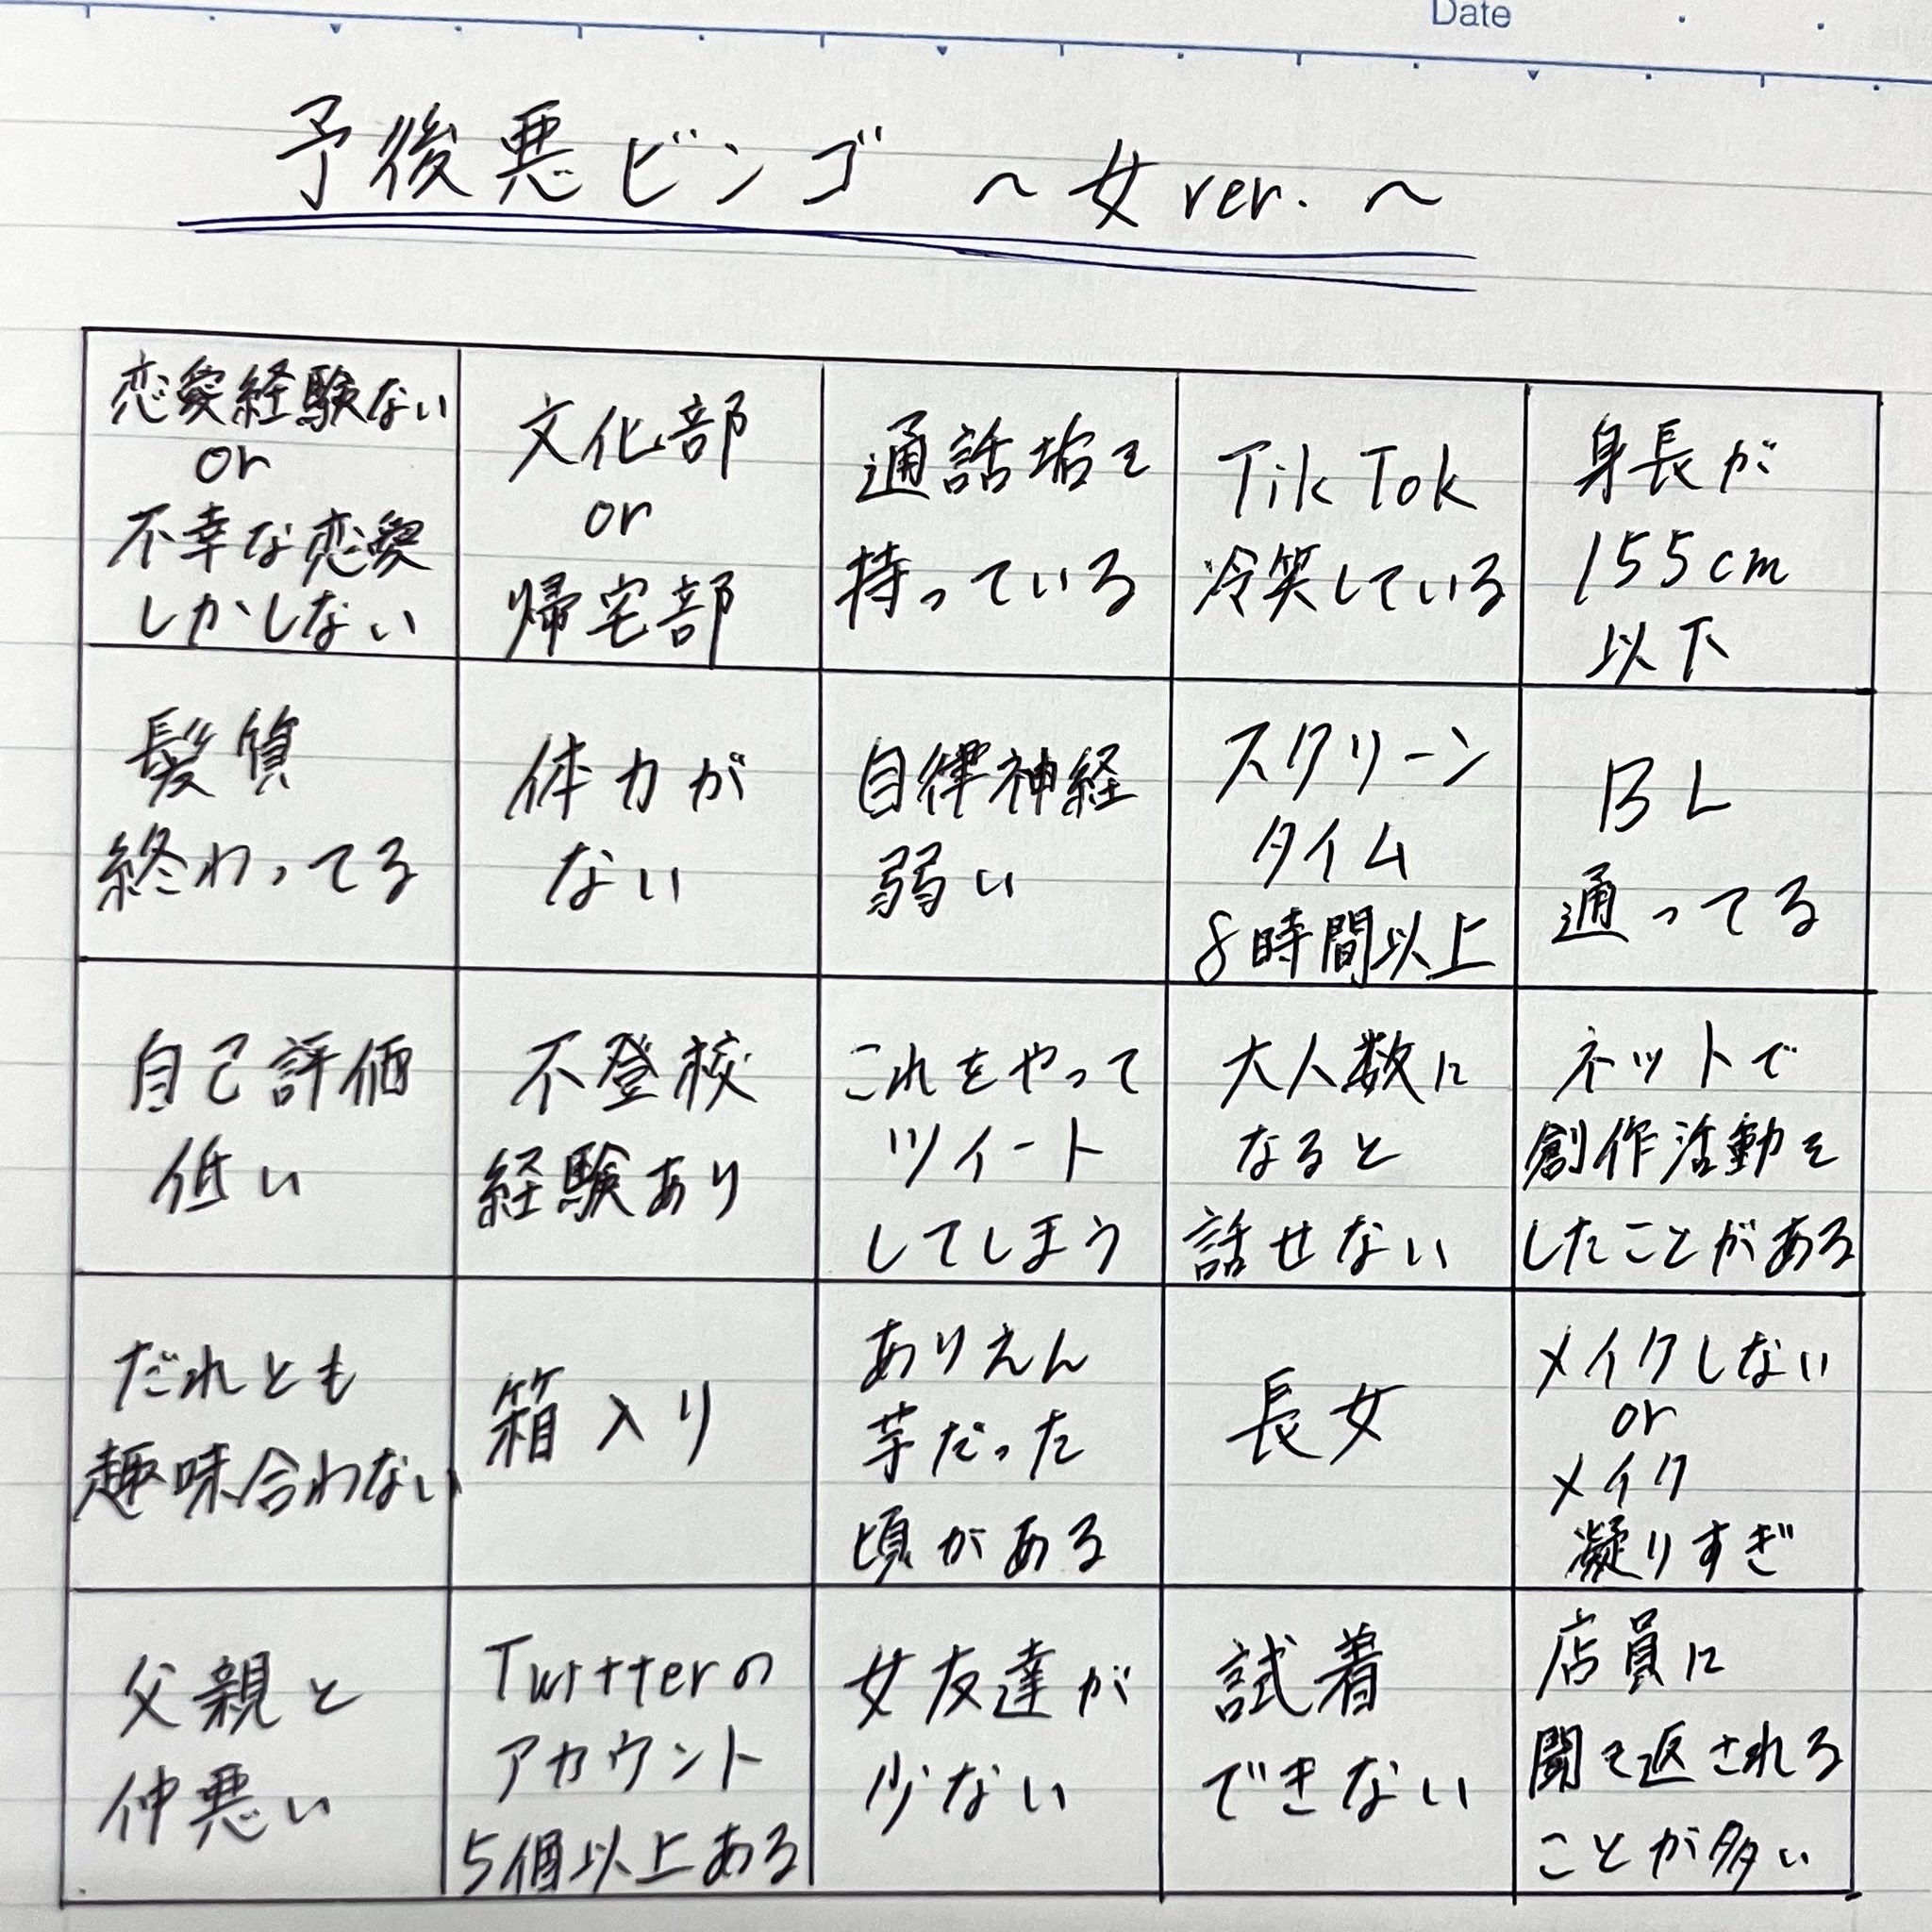 Date
予後悪ビンゴ ～女ver.～
恋愛経験ない
or
不幸な恋愛
しかしない
文化部
or
帰宅部
通話垢を
持っている
TikTok
冷笑している
身長が
155cm
以下
髪質
終わってる
体力が
ない
自律神経
弱い
スクリーン
タイム
8時間以上
BL
通ってる
自己評価
低い
不登校
経験あり
これをやって
ツイート
してしまう
大人数に
なると
話せない
ネットで
創作活動を
したことがある
だれとも
趣味合わない
箱入り
ありえん
芋だった
頃がある
長女
メイクしない
or
メイク
凝りすぎ
父親と
仲悪い
Twitterの
アカウント
5個以上ある
女友達が
少ない
試着
できない
店員に
聞き返される
ことが多い